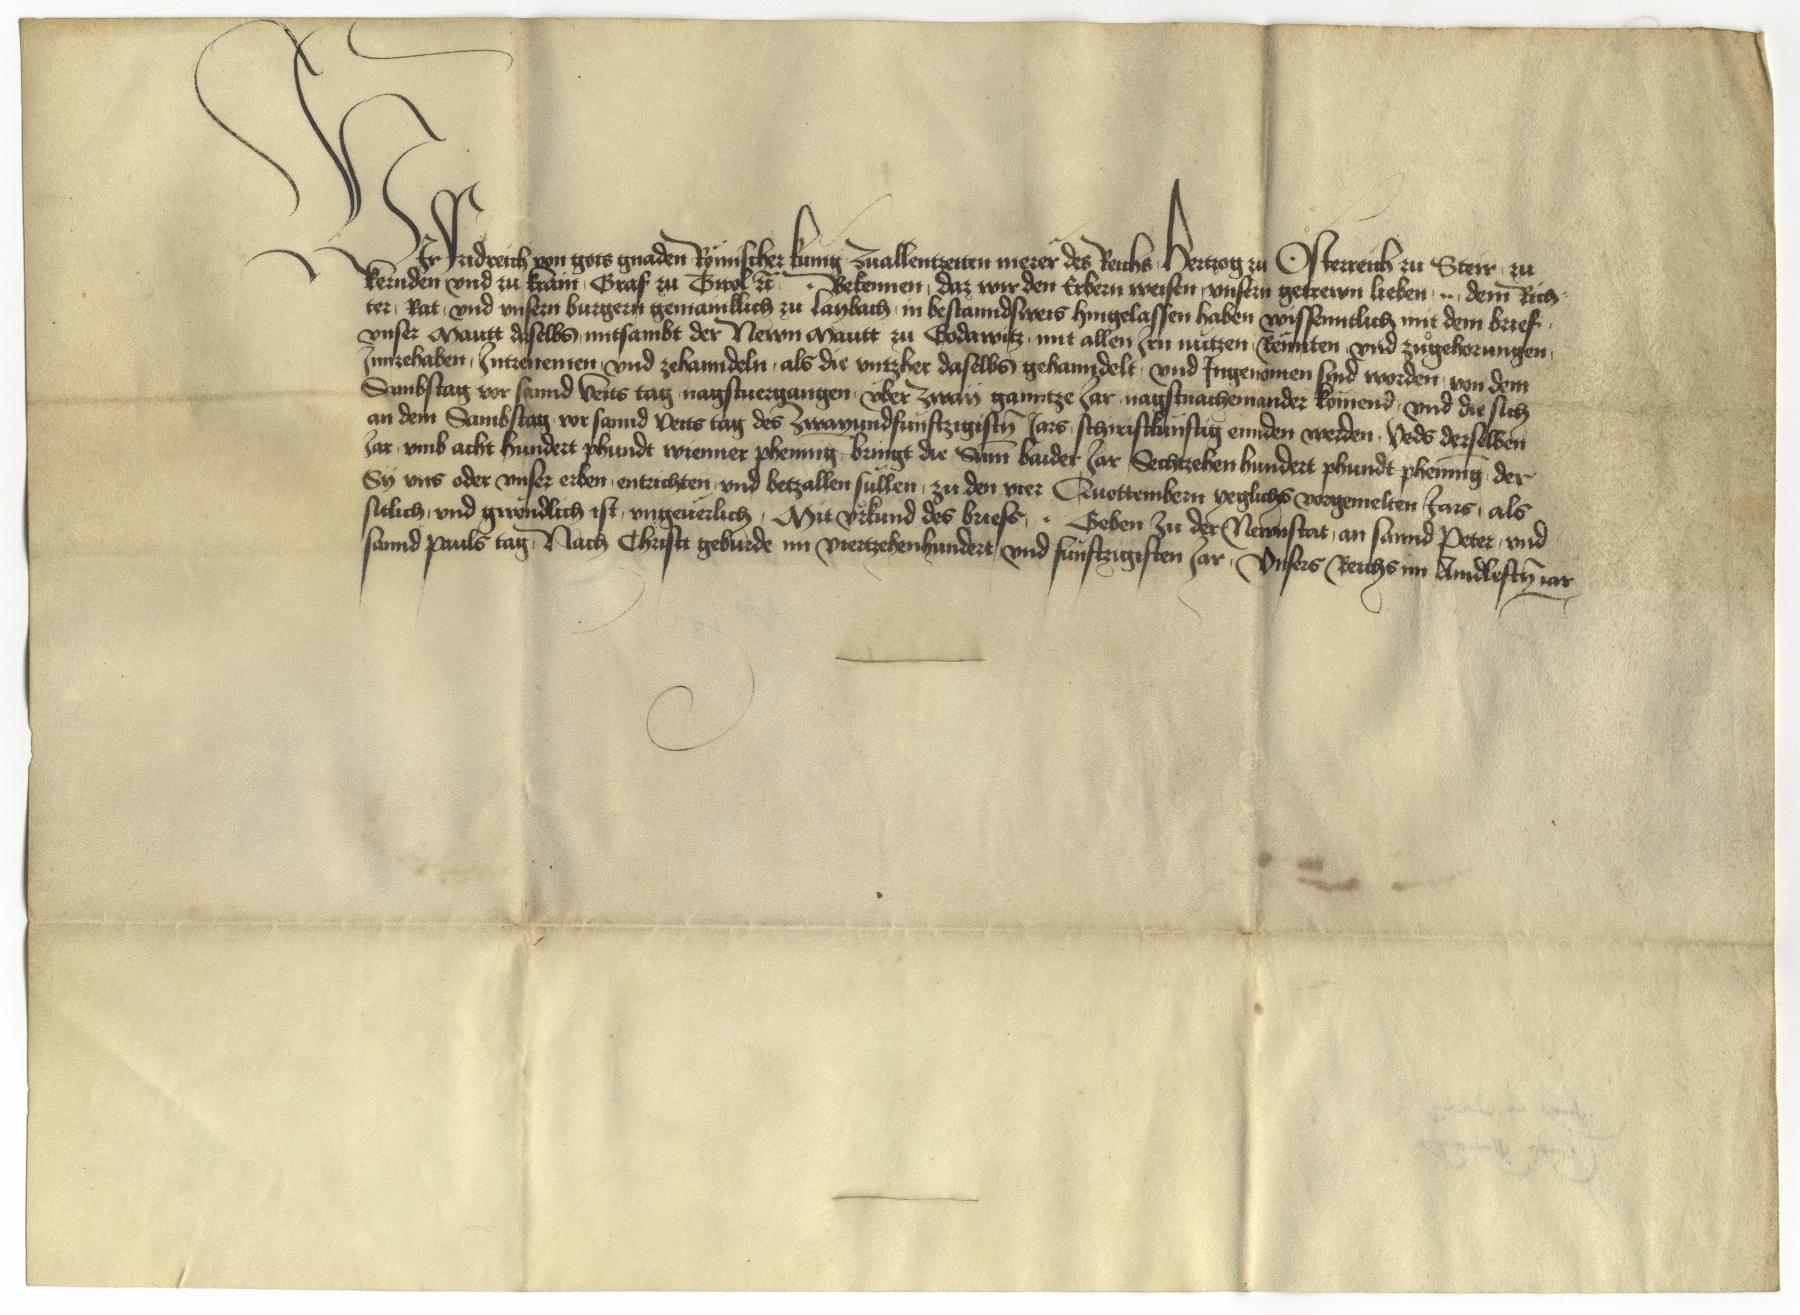 Wir Fridreich von gots gnaden Römischer kunig zuallentzeiten merer des Reichs Hertzog zu Österreich zu Steir zu
kernden vnd zu krain Graf zu Tirol etc. Bekennen daz wir den Erbern weisen vnsern getrewn lieben .. dem Rich
ter Rat vnd vnsern burgern gemainklich zu Laybach in bestanndsweis hingelassen haben wissenntlich mit dem brief
vnser Mautt daselbs mitsambt der Newn Mautt zu mit allen Irn nützen Rennten vnd zugehorungen
Innzehaben Intzenemen vnd zehanndeln als die vntzher daselbs gehanndelt vnd Ingenomen sind worden von dem
Sambstag vor sannd Veits tag nagstuergangen vber zway ganntze Jar nagstnacheinander komend vnd die sich
an dem Sambstag vor sannd Veits tag des Zwayundfunftzigistn Jars schiristkunftig ennden werden Yeds derselben
Jar vmb acht hundert phundt wienner phening bringt die Sum baider Jar Sechtzehen hundert phundt phening der
Sy vns oder vnser erben entrichten vnd betzallen sullen zu den vier Quottembern yeglichs vorgemelten Jars als
sitlich vnd gwondlich ist vngeuerlich Mit vrkund des briefs Geben zu der Newnstat an sannd Peter vnd
sannd Pauls tag Nach Christi geburde im viertzehenhundert vnd funftzigisten Jar Vnsers Reichs im Aindleftn iar